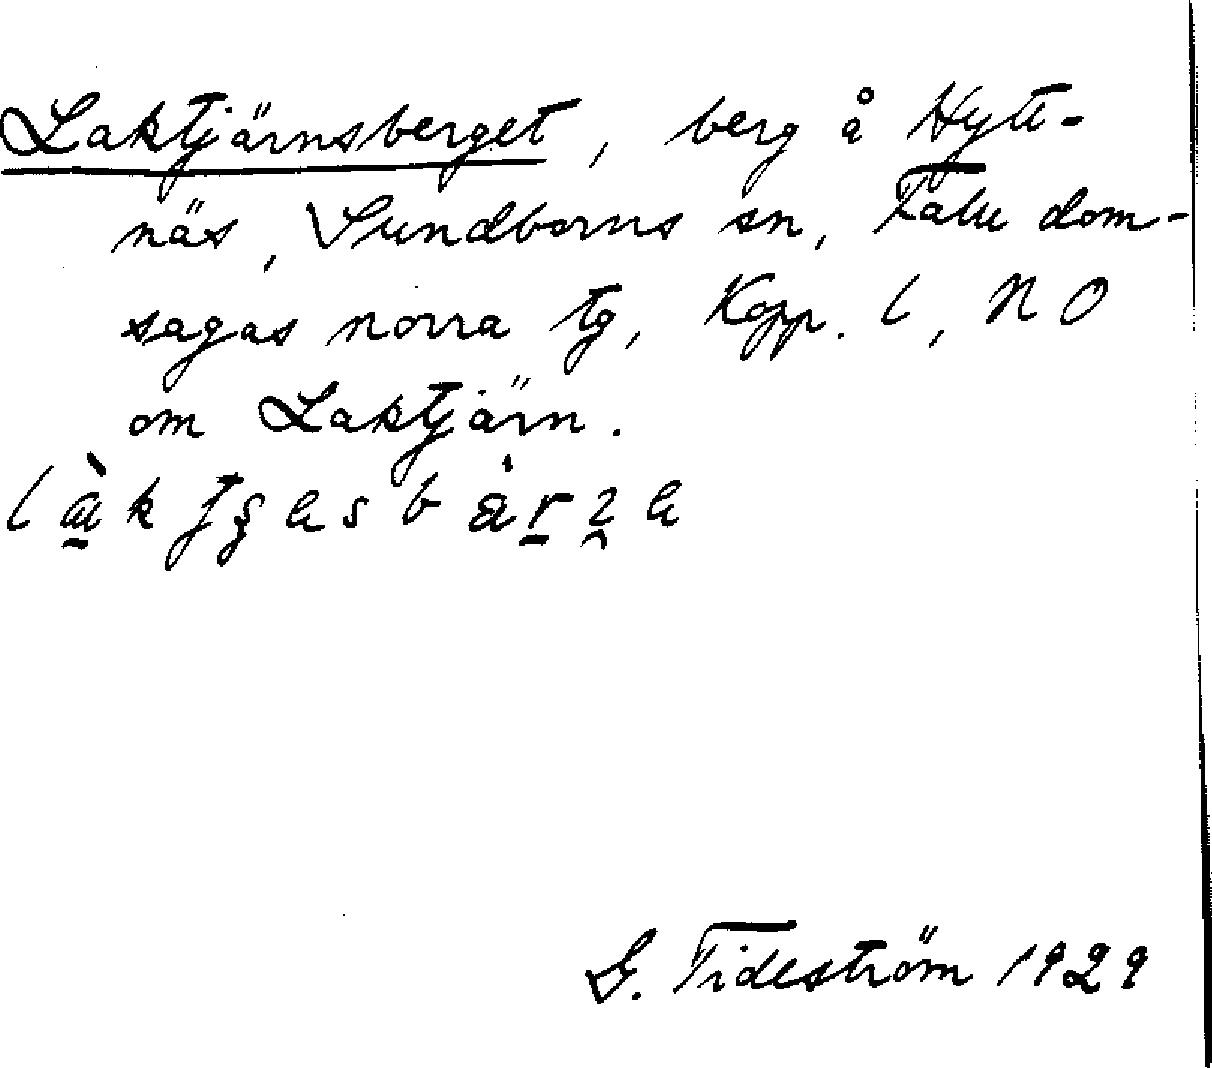 Laktjärnsberget, berg å Hytt-
näs, Sundborns sn, Falu dom-
sagas norra tg, Kopp. l, NO
om Laktjärn.
G. Tideström 1929